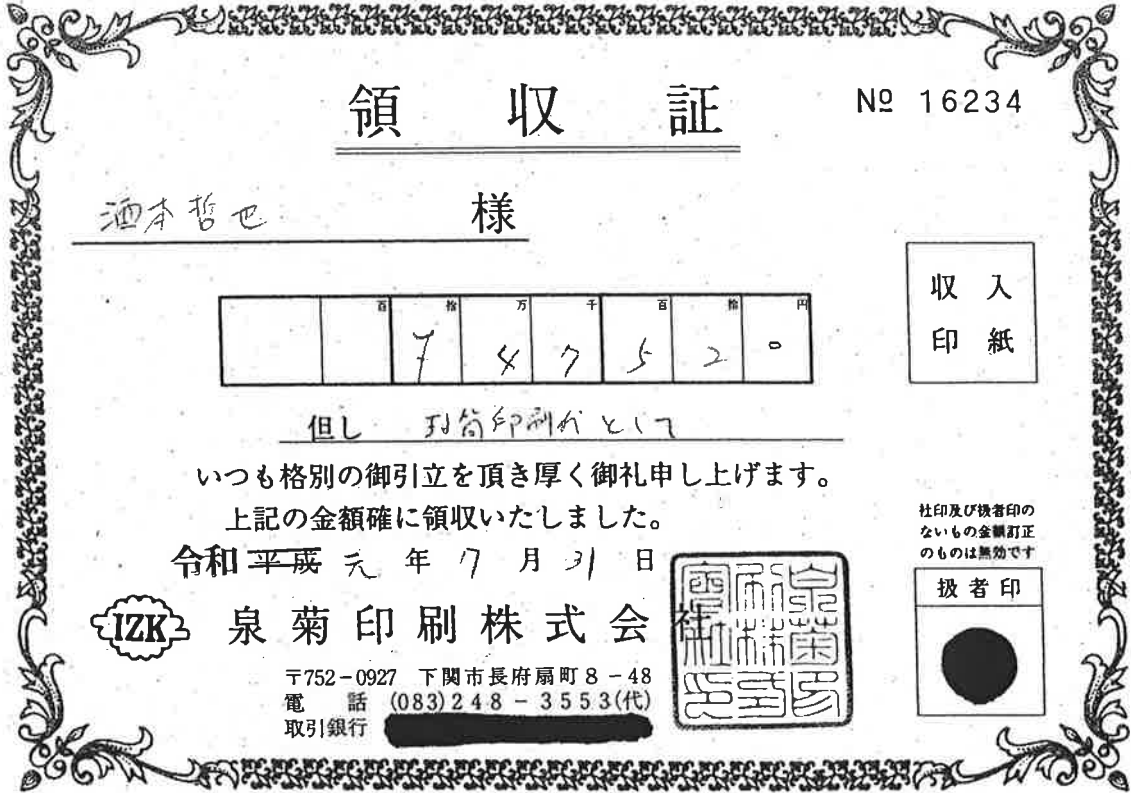 領収証
№ 16234
酒本哲也 様
収入
印紙
百 拾 万 千 百 拾 円
¥ 4 7 5 2 0
但し 封筒印刷代として
いつも格別の御引立を頂き厚く御礼申し上げます。
上記の金額確に領収いたしました。
令和 平成 元 年 7 月 31 日
社印及び扱者印の
ないもの金額訂正
のものは無効です
扱者印
IZK 泉菊印刷株式会社
〒752-0927 下関市長府扇町8-48
電話 (083)248-3553(代)
取引銀行